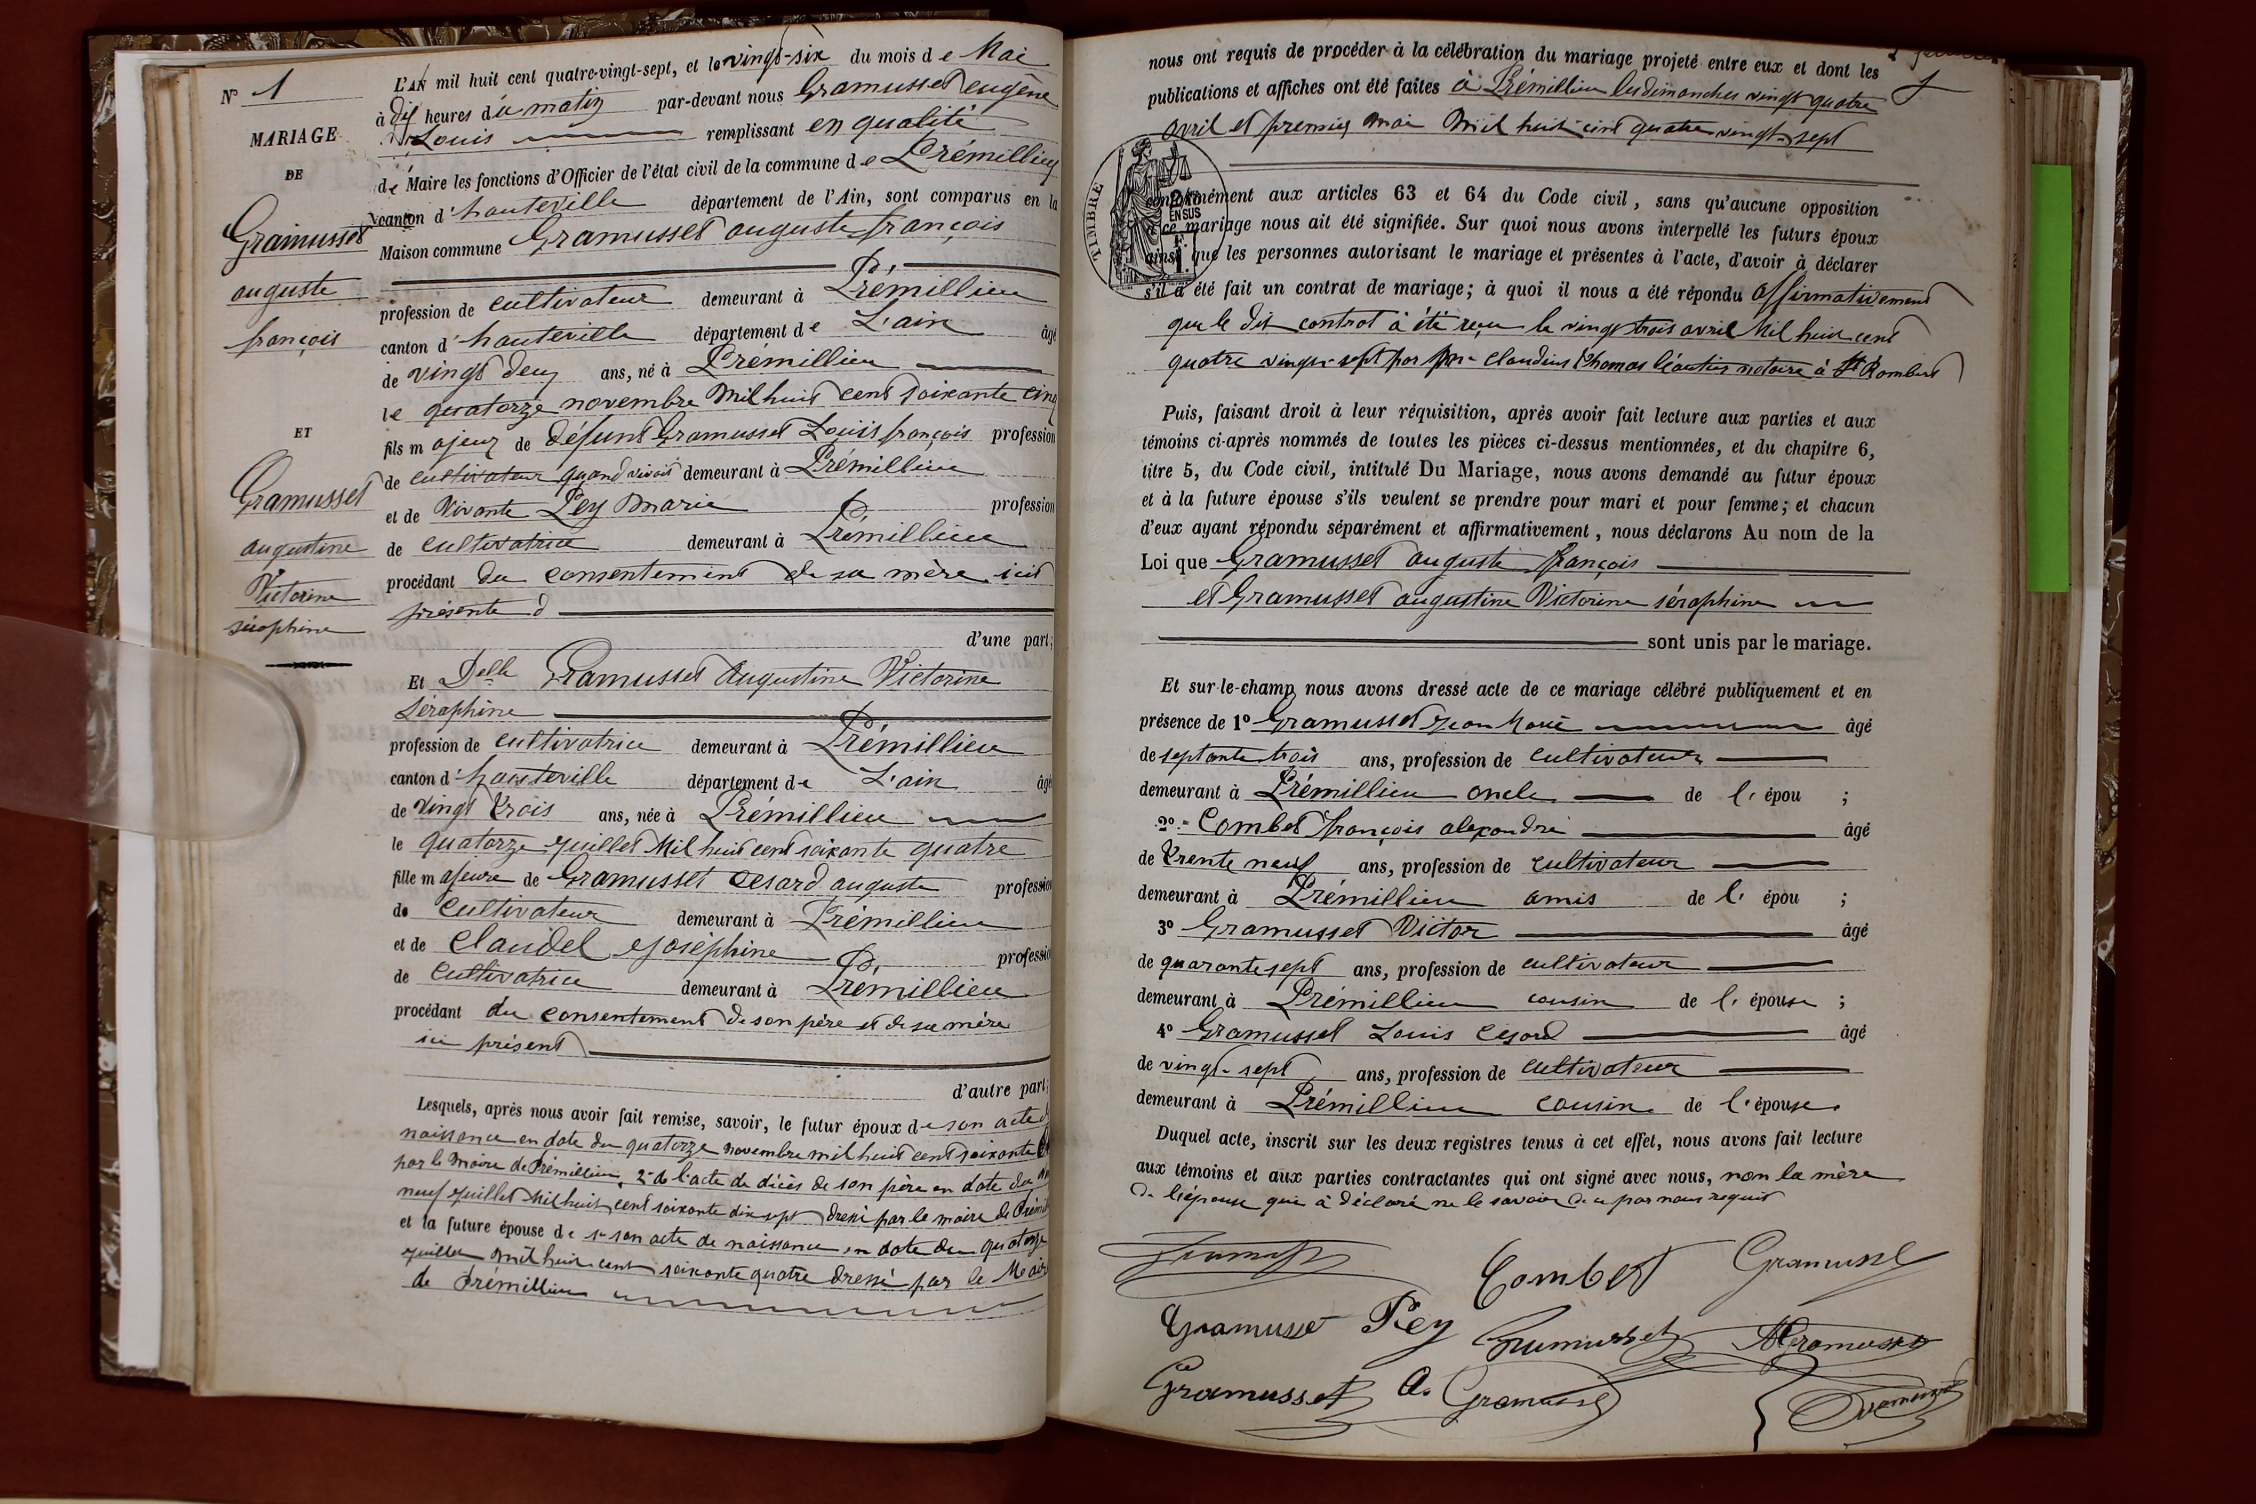 N° 1
MARIAGE
DE
Gramusset
auguste
françois
ET
Gramusset
augustine
Victorine
séraphine
L'AN mil huit cent quatre-vingt-sept, et le vingt-six du mois de Mai
à dix heures du matin par-devant nous Gramusset eugène
Louis remplissant en qualité
de Maire les fonctions d'Officier de l'état civil de la commune de Prémillieu
canton d'hauteville département de l'Ain, sont comparus en la
Maison commune Gramusset auguste françois
profession de cultivateur demeurant à Prémillieu
canton d'hauteville département de L'ain âgé
de vingt deux ans, né à Prémillieu
le quatorze novembre Mil huit cent soixante cinq
fils majeur de défunt Gramusset Louis françois profession
de cultivateur quand vivait demeurant à Prémillieu
et de Vivante Pey Marie profession
de cultivatrice demeurant à Prémillieu
procédant du consentement de sa mère ici
présente
d'une part;
Et Delle Gramusset Augustine Victorine
Séraphine
profession de cultivatrice demeurant à Prémillieu
canton d'hauteville département de L'ain âgé
de vingt trois ans, née à Prémillieu
le quatorze juillet Mil huit cent soixante quatre
fille majeure de Gramusset Cesard auguste profession
de Cultivateur demeurant à Prémillieu
et de Claudel Joséphine profession
de Cultivatrice demeurant à Prémillieu
procédant du consentement de son père et de sa mère
ici présent
d'autre part;
Lesquels, après nous avoir fait remise, savoir, le futur époux de son acte de
naissance en date du quatorze novembre mil huit cent soixante
par le Maire de Prémillieu, 2° de l'acte de décès de son père en date du
neuf juillet Mil huit cent soixante dix sept dressé par le maire de Prémil
et la future épouse de 1° son acte de naissance en date du quatorze
juillet mil huit cent soixante quatre dressé par le Maire
de Prémillieu
nous ont requis de procéder à la célébration du mariage projeté entre eux et dont les
publications et affiches ont été faites à Prémillieu les dimanches vingt quatre
avril et premier mai Mil huit cent quatre vingt-sept
TIMBRE
EN SUS
conformément aux articles 63 et 64 du Code civil, sans qu'aucune opposition
à ce mariage nous ait été signifiée. Sur quoi nous avons interpellé les futurs époux
ainsi que les personnes autorisant le mariage et présentes à l'acte, d'avoir à déclarer
s'il a été fait un contrat de mariage; à quoi il nous a été répondu affirmativement
que le dit contrat à été reçu le vingt trois avril Mil huit cent
quatre vingt-sept par Claudius Thomas notaire à St Rambert
Puis, faisant droit à leur réquisition, après avoir fait lecture aux parties et aux
témoins ci-après nommés de toutes les pièces ci-dessus mentionnées, et du chapitre 6,
titre 5, du Code civil, intitulé Du Mariage, nous avons demandé au futur époux
et à la future épouse s'ils veulent se prendre pour mari et pour femme; et chacun
d'eux ayant répondu séparément et affirmativement, nous déclarons Au nom de la
Loi que Gramusset auguste françois
et Gramusset augustine Victorine séraphine
sont unis par le mariage.
Et sur-le-champ nous avons dressé acte de ce mariage célébré publiquement et en
présence de 1° Gramusset Jean Marie âgé
de septante trois ans, profession de cultivateur
demeurant à Prémillieu oncle de l'épou ;
2° Combet françois alexandre âgé
de trente neuf ans, profession de cultivateur
demeurant à Prémillieu amis de l'épou ;
3° Gramusset Victor âgé
de quarante sept ans, profession de cultivateur
demeurant à Prémillieu cousin de l'épouse ;
4° Gramusset Louis Cesard âgé
de vingt-sept ans, profession de cultivateur
demeurant à Prémillieu cousin de l'épouse.
Duquel acte, inscrit sur les deux registres tenus à cet effet, nous avons fait lecture
aux témoins et aux parties contractantes qui ont signé avec nous, non la mère
de l'épouse qui à déclaré ne le savoir de ce par nous requis
Combet Gramusset
Gramusset Pey Gramusset Gramusset
Gramusset A. Gramusset